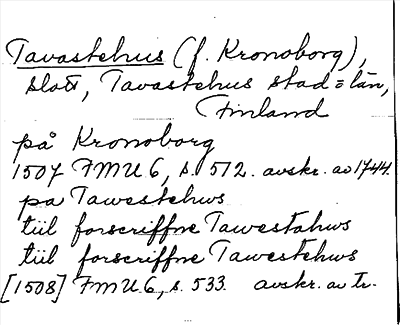 Tavastehus (f. Kronoborg),
slott, Tavastehus stad = län,
Finland
på Kronoborg
1507 FMU 6, s. 512. avskr. av 1744.
pa Tawestehws
tiil forscriffne Tawestahws
tiil forscriffne Tawestehws
[1508] FMU 6, s. 533. avskr. av tr.